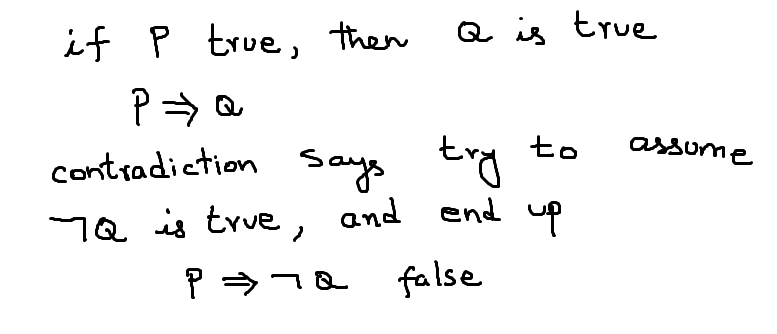 if P true, then Q is true
P ⇒ Q
contradiction says try to assume
¬Q is true, and end up
P ⇒ ¬Q false